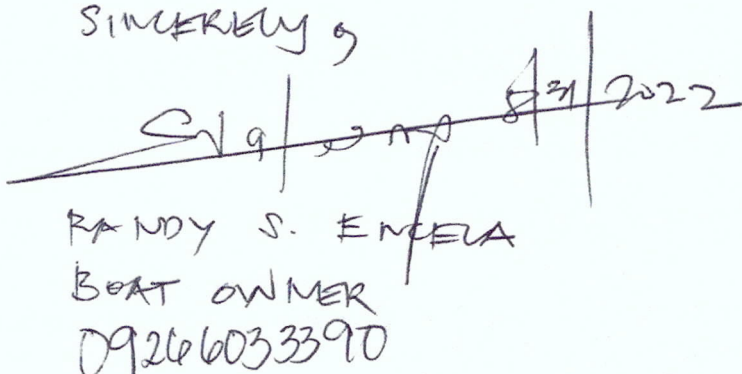 SINCERELY,
8/31/2022
RANDY S. ENCELA
BOAT OWNER
09266033390